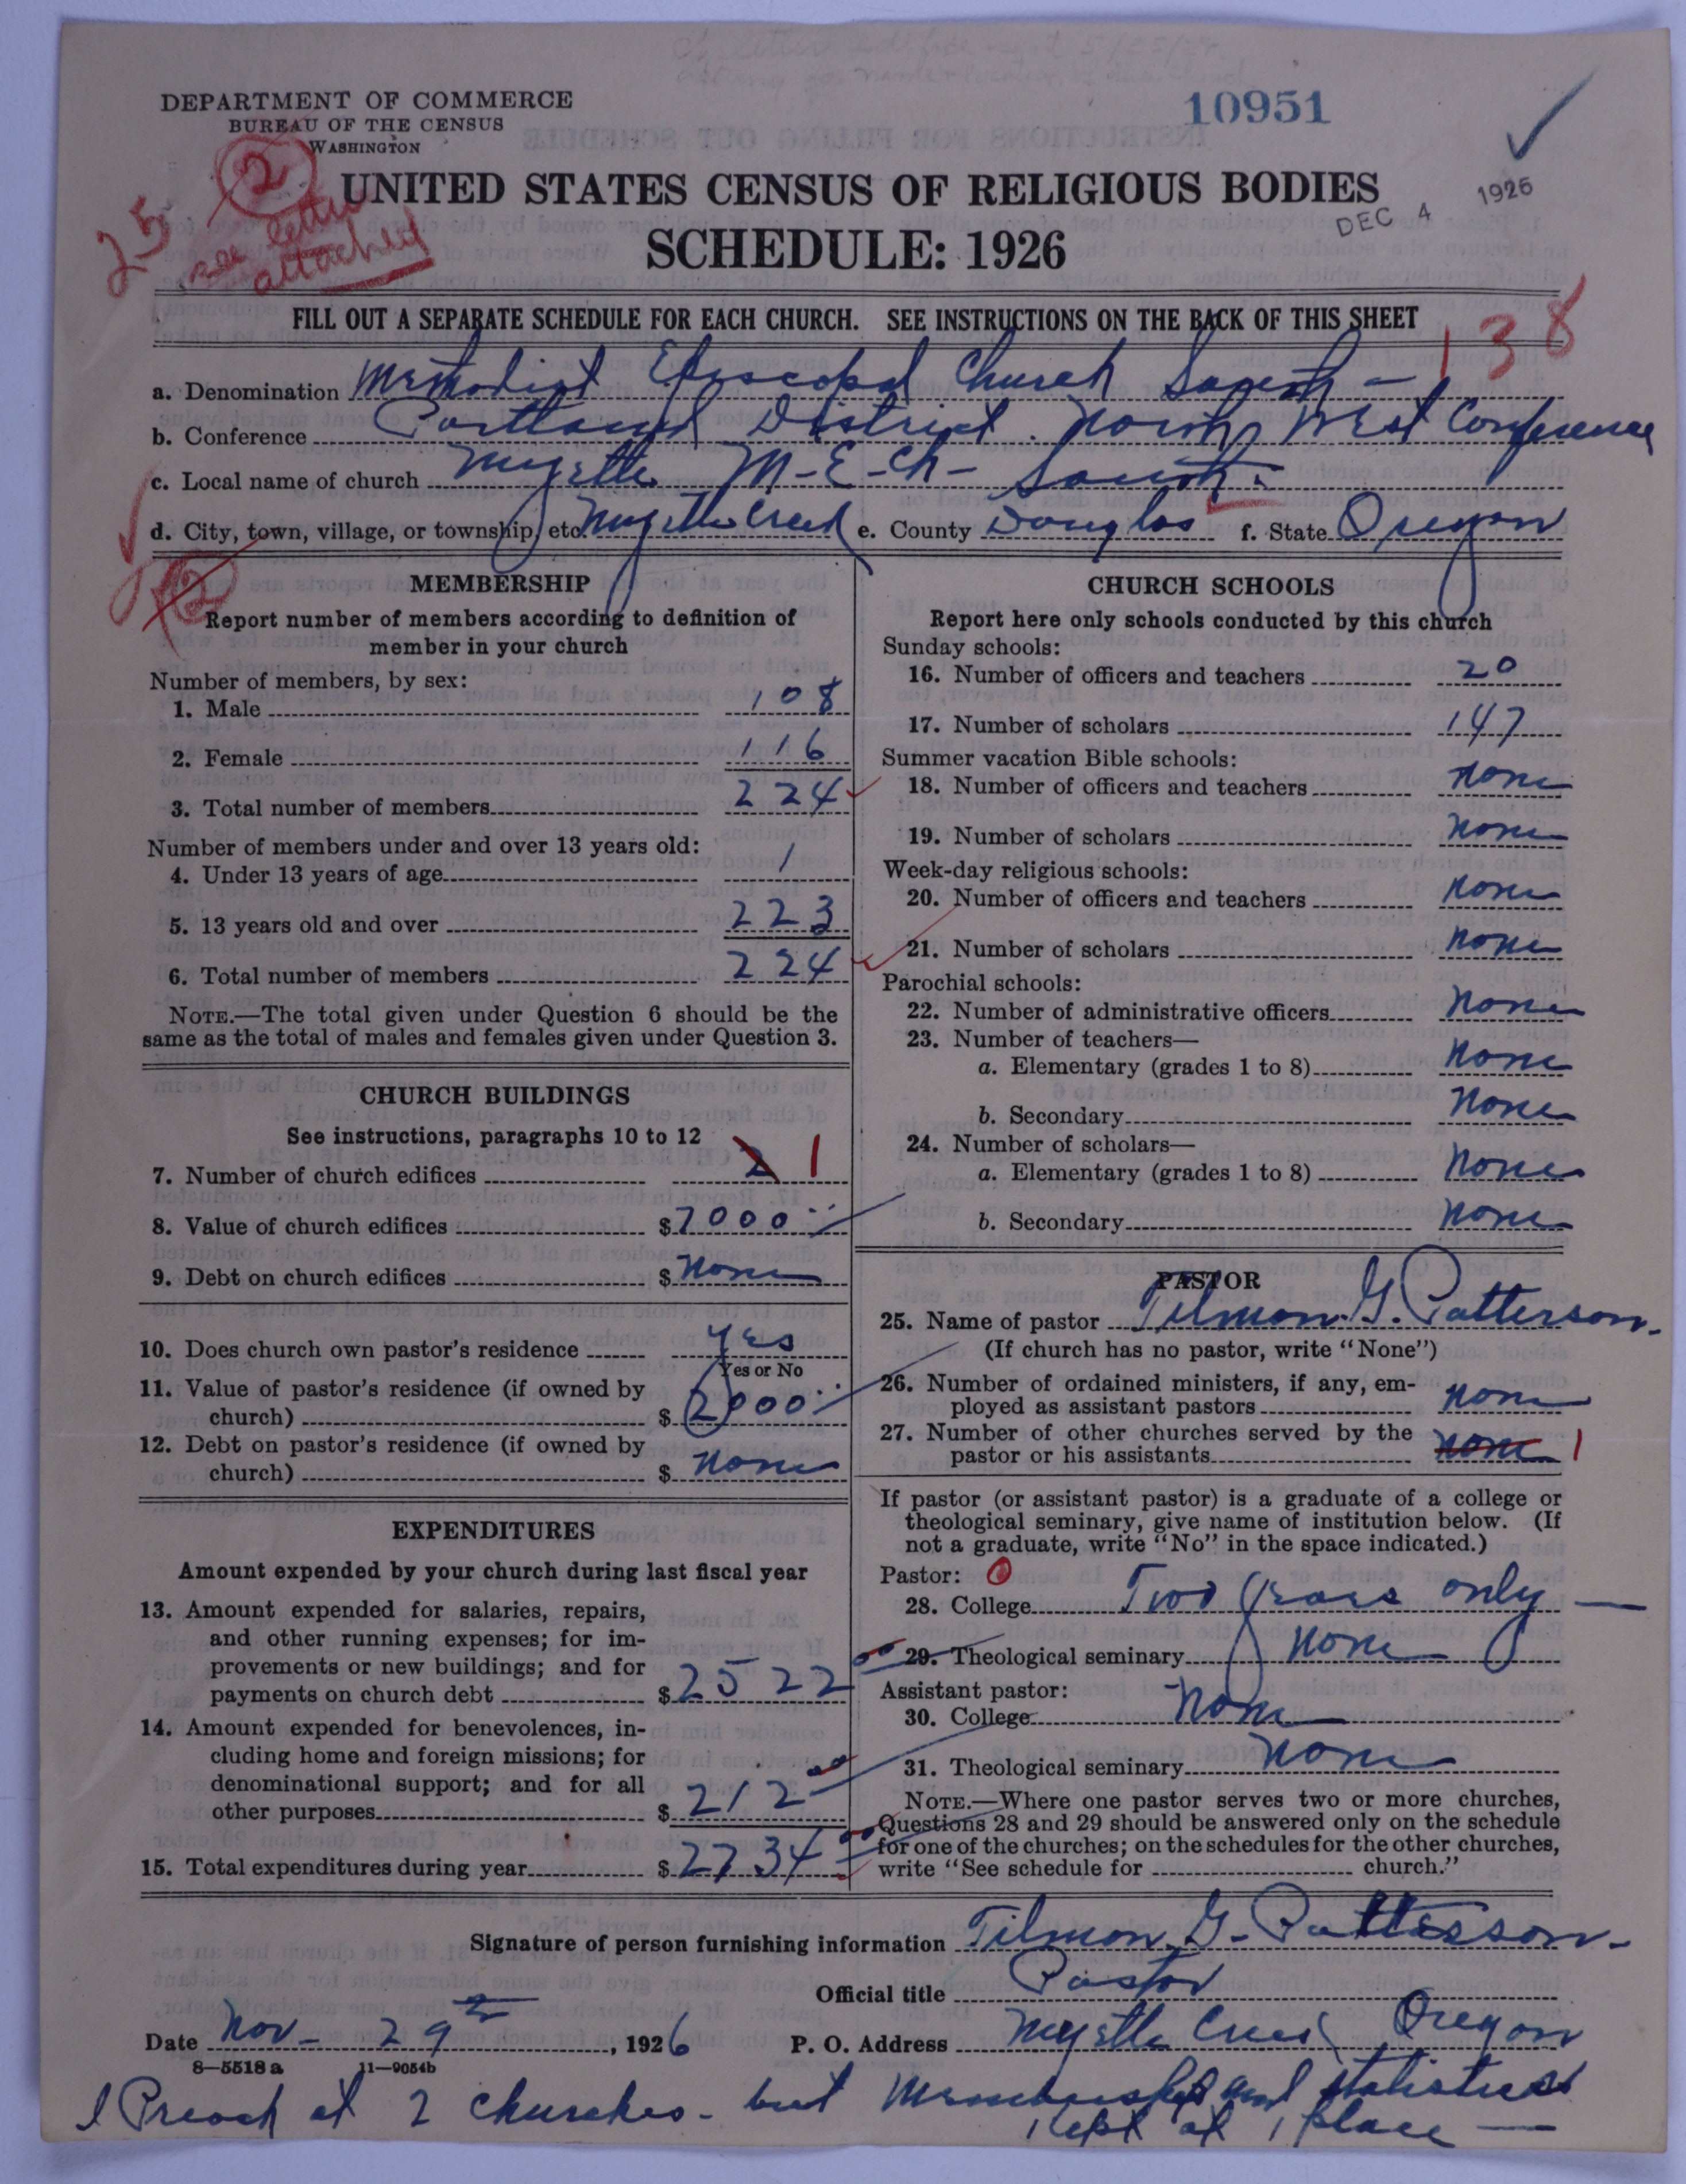 DEPARTMENT OF COMMERCE
BUREAU OF THE CENSUS
WASHINGTON
10951
2
25
see letter
attached
UNITED STATES CENSUS OF RELIGIOUS BODIES
SCHEDULE: 1926
DEC 4 1926
FILL OUT A SEPARATE SCHEDULE FOR EACH CHURCH. SEE INSTRUCTIONS ON THE BACK OF THIS SHEET
138
a. Denomination Methodist Episcopal Church South -
b. Conference Portland District. North West Conference
c. Local name of church Myrtle M-E-Ch- South-
d. City, town, village, or township, etc. Myrtle Creek e. County Douglas f. State Oregon
2
MEMBERSHIP
Report number of members according to definition of
member in your church
Number of members, by sex:
1. Male 108
2. Female 116
3. Total number of members 224
Number of members under and over 13 years old:
4. Under 13 years of age 1
5. 13 years old and over 223
6. Total number of members 224
NOTE.—The total given under Question 6 should be the
same as the total of males and females given under Question 3.
CHURCH BUILDINGS
See instructions, paragraphs 10 to 12
7. Number of church edifices 2 1
8. Value of church edifices $7000
9. Debt on church edifices $ None
10. Does church own pastor's residence Yes
Yes or No
11. Value of pastor's residence (if owned by
church) $ 2000
12. Debt on pastor's residence (if owned by
church) $ None
EXPENDITURES
Amount expended by your church during last fiscal year
13. Amount expended for salaries, repairs,
and other running expenses; for im-
provements or new buildings; and for
payments on church debt $2522 00
14. Amount expended for benevolences, in-
cluding home and foreign missions; for
denominational support; and for all
other purposes $ 212 00
15. Total expenditures during year $ 2734 00
CHURCH SCHOOLS
Report here only schools conducted by this church
Sunday schools:
16. Number of officers and teachers 20
17. Number of scholars 147
Summer vacation Bible schools:
18. Number of officers and teachers None
19. Number of scholars None
Week-day religious schools:
20. Number of officers and teachers None
21. Number of scholars None
Parochial schools:
22. Number of administrative officers None
23. Number of teachers—
a. Elementary (grades 1 to 8) None
b. Secondary None
24. Number of scholars—
a. Elementary (grades 1 to 8) None
b. Secondary None
PASTOR
25. Name of pastor Tilmon. G. Patterson.
(If church has no pastor, write "None")
26. Number of ordained ministers, if any, em-
ployed as assistant pastors None
27. Number of other churches served by the
pastor or his assistants None 1
If pastor (or assistant pastor) is a graduate of a college or
theological seminary, give name of institution below. (If
not a graduate, write "No" in the space indicated.)
Pastor: 0
28. College Two years only —
29. Theological seminary None
Assistant pastor:
30. College None
31. Theological seminary None
NOTE.—Where one pastor serves two or more churches,
Questions 28 and 29 should be answered only on the schedule
for one of the churches; on the schedules for the other churches,
write "See schedule for church."
Signature of person furnishing information Tilmon. G. Patterson.
Official title Pastor
Date Nov- 29th, 1926 P. O. Address Myrtle Creek Oregon
8—5518 a 11—9054b
I Preach at 2 churches - but Membership and statistics
Kept at 1 place —